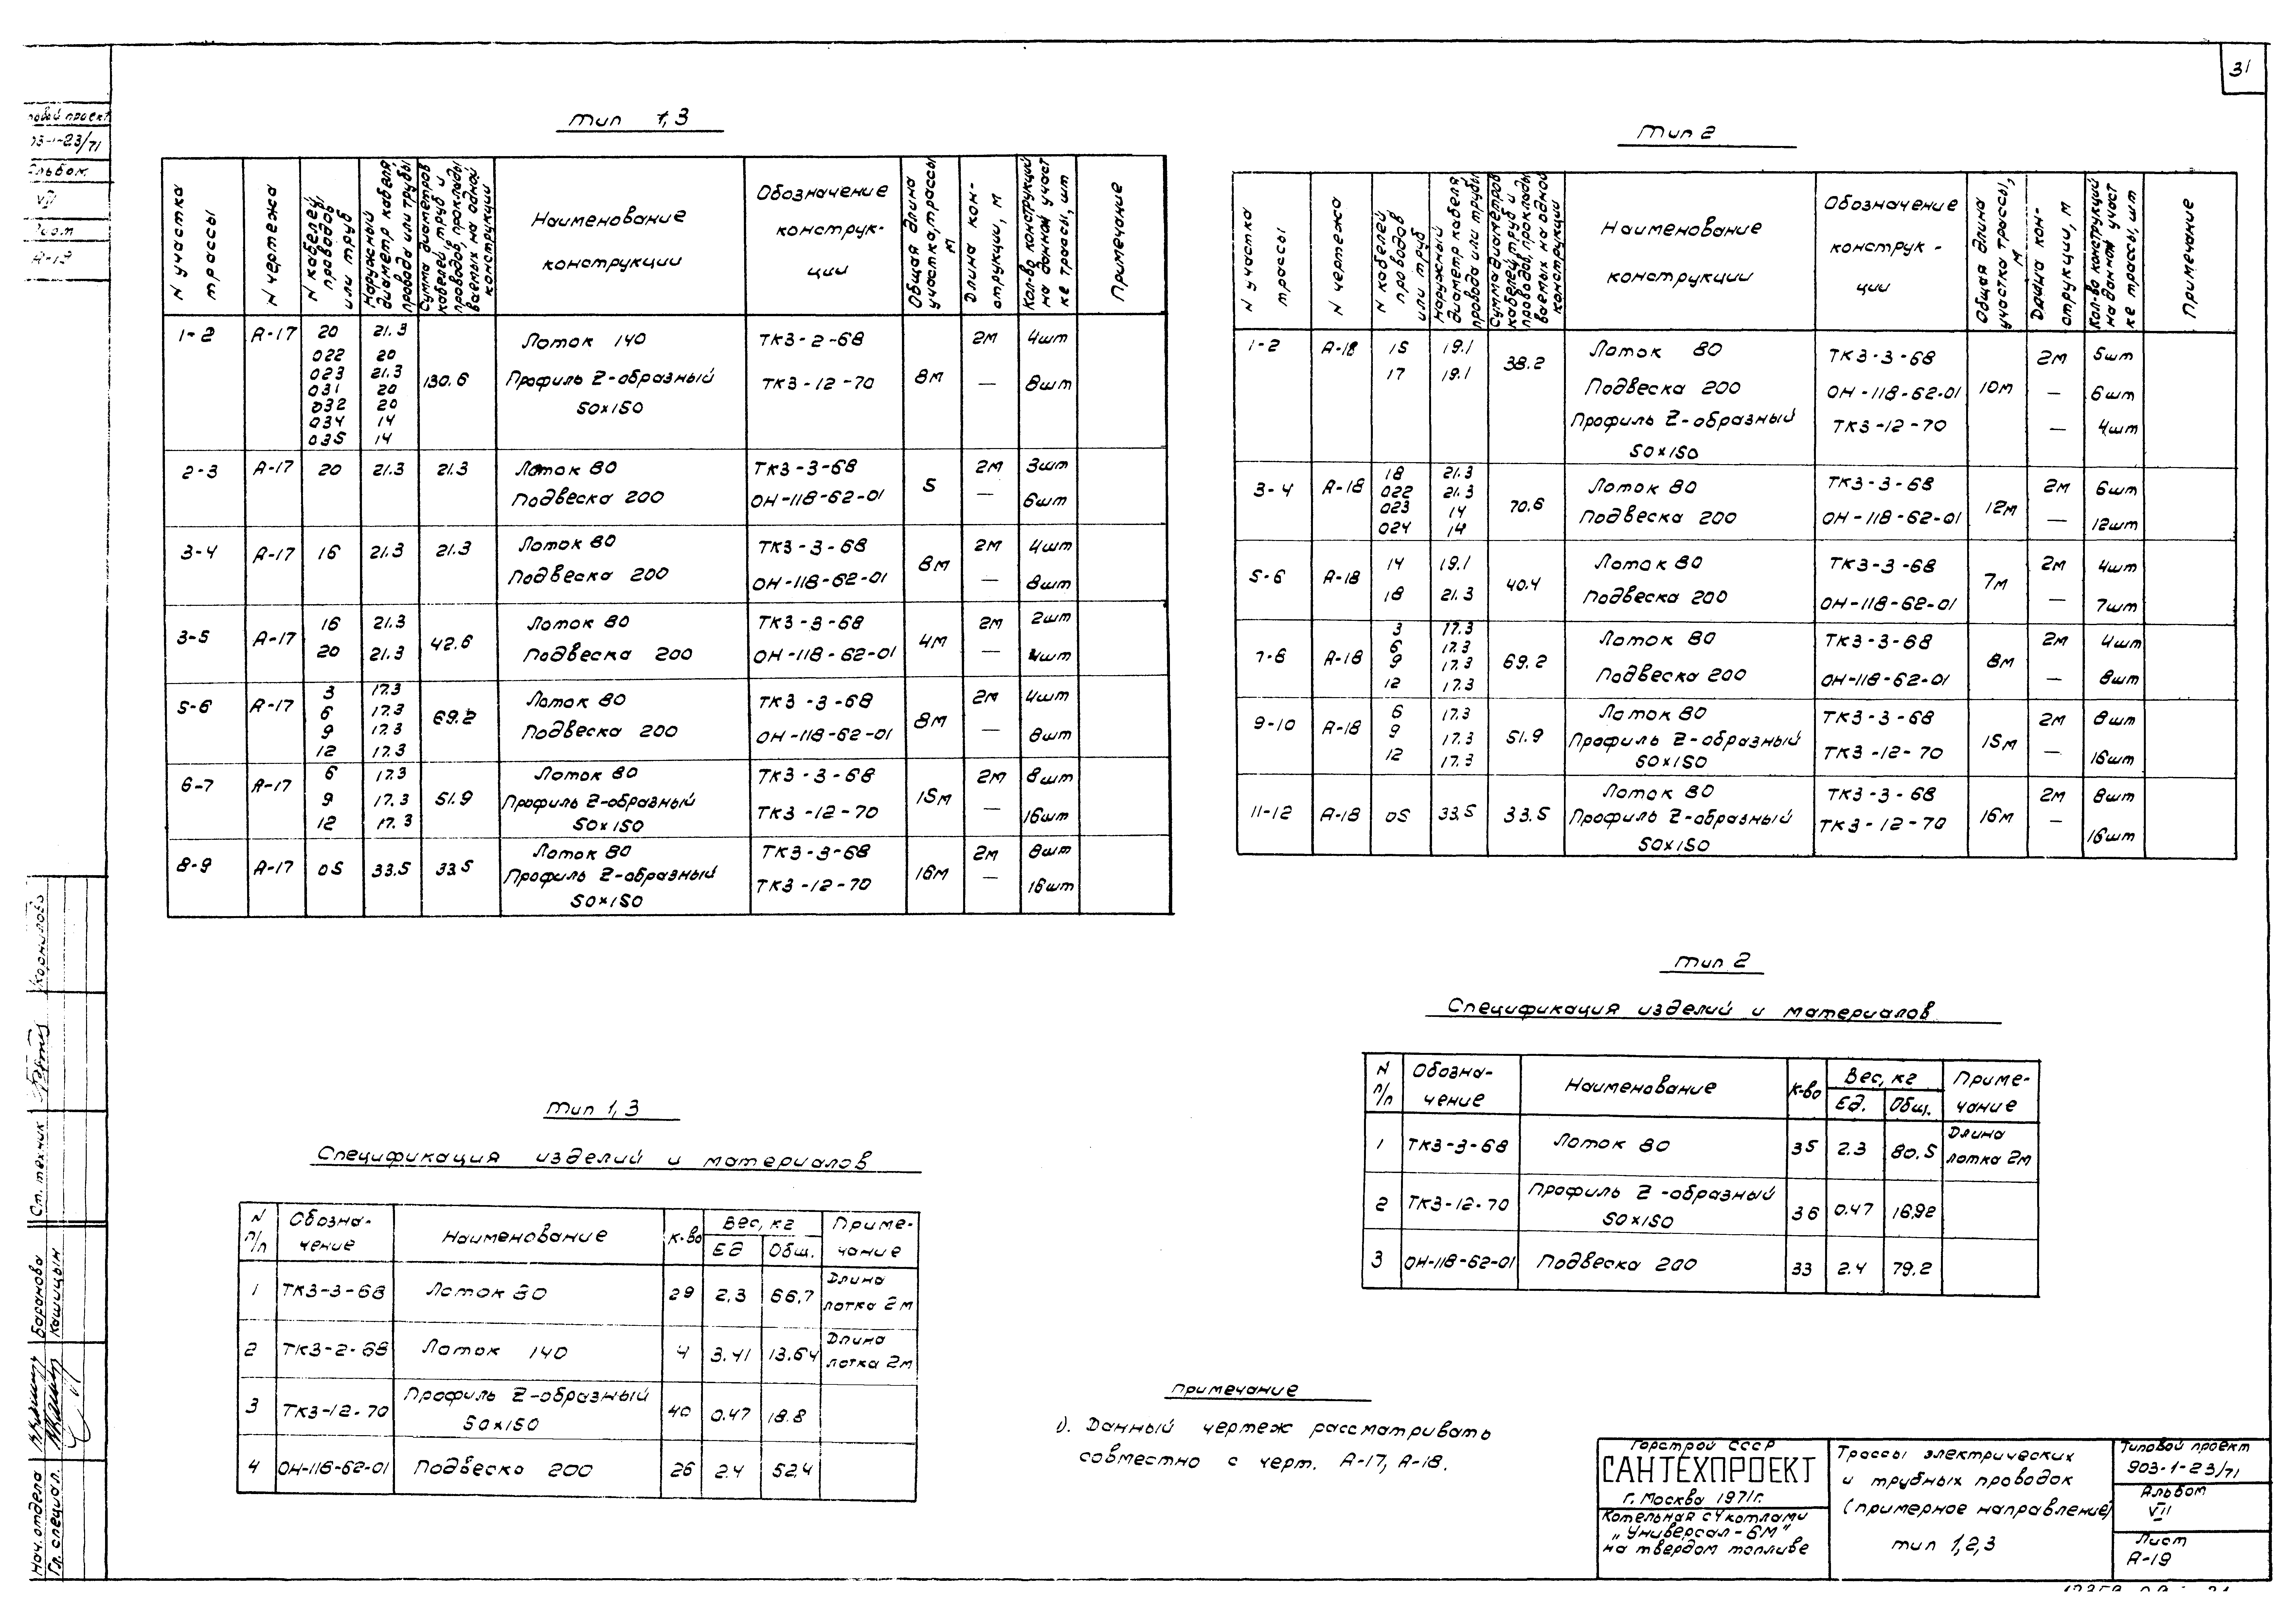 31
Тип 1,3
N участка трассы | N чертежа | N кабелей, проводов или труб | Наружный диаметр кабеля, провода или трубы | Сумма диаметров кабелей, труб и проводов, прокладываемых на одной конструкции | Наименование конструкции | Обозначение конструк-ции | Общая длина участка, трассы м | Длина кон-струкции, м | Кол-во конструкций на данном участ ке трассы, шт | Примечание
1-2 | А-17 | 20 | 21.3 | 130.6 | Лоток 140 | ТКЗ-2-68 | 8м | 2м | 4шт
022 | 20 | Профиль Z-образный | ТКЗ-12-70 | — | 8шт
023 | 21.3 | 50х150
031 | 20
032 | 20
034 | 14
035 | 14
2-3 | А-17 | 20 | 21.3 | 21.3 | Лоток 80 | ТКЗ-3-68 | 5 | 2м | 3шт
Подвеска 200 | ОН-118-62-01 | — | 6шт
3-4 | А-17 | 16 | 21.3 | 21.3 | Лоток 80 | ТКЗ-3-68 | 8м | 2м | 4шт
Подвеска 200 | ОН-118-62-01 | — | 8шт
3-5 | А-17 | 16 | 21.3 | 42.6 | Лоток 80 | ТКЗ-3-68 | 4м | 2м | 2шт
20 | 21.3 | Подвеска 200 | ОН-118-62-01 | — | 4шт
5-6 | А-17 | 3 | 17.3 | 69.2 | Лоток 80 | ТКЗ-3-68 | 8м | 2м | 4шт
6 | 17.3 | Подвеска 200 | ОН-118-62-01 | — | 8шт
9 | 17.3
12 | 17.3
6-7 | А-17 | 6 | 17.3 | 51.9 | Лоток 80 | ТКЗ-3-68 | 15м | 2м | 8шт
9 | 17.3 | Профиль Z-образный | ТКЗ-12-70 | — | 16шт
12 | 17.3 | 50х150
8-9 | А-17 | 05 | 33.5 | 33.5 | Лоток 80 | ТКЗ-3-68 | 16м | 2м | 8шт
Профиль Z-образный | ТКЗ-12-70 | — | 16шт
50х150
Тип 2
N участка трассы | N чертежа | N кабелей проводов или труб | Наружный диаметр кабеля провода или трубы | Сумма диаметров кабелей, труб и проводов, прокладываемых на одной конструкции | Наименование конструкции | Обозначение конструк-ции | Общая длина участка трассы, м | Длина кон-струкции, м | Кол-во конструкций на данном участ ке трассы, шт | Примечание
1-2 | А-18 | 15 | 19.1 | 38.2 | Лоток 80 | ТКЗ-3-68 | 10м | 2м | 5шт
17 | 19.1 | Подвеска 200 | ОН-118-62-01 | — | 6шт
Профиль Z-образный | ТКЗ-12-70 | — | 4шт
50х150
3-4 | А-18 | 18 | 21.3 | 70.6 | Лоток 80 | ТКЗ-3-68 | 12м | 2м | 6шт
022 | 21.3 | Подвеска 200 | ОН-118-62-01 | — | 12шт
023 | 14
024 | 14
5-6 | А-18 | 14 | 19.1 | 40.4 | Лоток 80 | ТКЗ-3-68 | 7м | 2м | 4шт
18 | 21.3 | Подвеска 200 | ОН-118-62-01 | — | 7шт
7-8 | А-18 | 3 | 17.3 | 69.2 | Лоток 80 | ТКЗ-3-68 | 8м | 2м | 4шт
6 | 17.3 | Подвеска 200 | ОН-118-62-01 | — | 8шт
9 | 17.3
12 | 17.3
9-10 | А-18 | 6 | 17.3 | 51.9 | Лоток 80 | ТКЗ-3-68 | 15м | 2м | 8шт
9 | 17.3 | Профиль Z-образный | ТКЗ-12-70 | — | 16шт
12 | 17.3 | 50х150
11-12 | А-18 | 05 | 33.5 | 33.5 | Лоток 80 | ТКЗ-3-68 | 16м | 2м | 8шт
Профиль Z-образный | ТКЗ-12-70 | — | 16шт
50х150
Тип 1,3
Спецификация изделий и материалов
N п/п | Обозна-чение | Наименование | к-во | Вес, кг Ед | Общ. | Приме-чание
1 | ТКЗ-3-68 | Лоток 80 | 29 | 2.3 | 66.7 | Длина лотка 2м
2 | ТКЗ-2-68 | Лоток 140 | 4 | 3.41 | 13.64 | Длина лотка 2м
3 | ТКЗ-12-70 | Профиль Z-образный 50х150 | 40 | 0.47 | 18.8
4 | ОН-118-62-01 | Подвеска 200 | 26 | 2.4 | 52.4
Тип 2
Спецификация изделий и материалов
N п/п | Обозна-чение | Наименование | к-во | Вес, кг Ед. | Общ. | Приме-чание
1 | ТКЗ-3-68 | Лоток 80 | 35 | 2.3 | 80.5 | Длина лотка 2м
2 | ТКЗ-12-70 | Профиль Z-образный 50х150 | 36 | 0.47 | 16.92
3 | ОН-118-62-01 | Подвеска 200 | 33 | 2.4 | 79.2
Примечание
1). Данный чертеж рассматривать
совместно с черт. А-17, А-18.
Горстрой СССР
САНТЕХПРОЕКТ
г. Москва 1971г.
Котельная с 4 котлами
„Универсал-6М"
на твердом топливе
Трассы электрических
и трубных проводок
(примерное направление)
тип 1,2,3
Типовой проект
903-1-23/71
Альбом
VII
Лист
А-19
повой проект
03-1-23/71
Альбом
VII
А-19
Нач. отдела
Гл. специал.
Баранова
Кашицын
Ст. техник
Корнилова